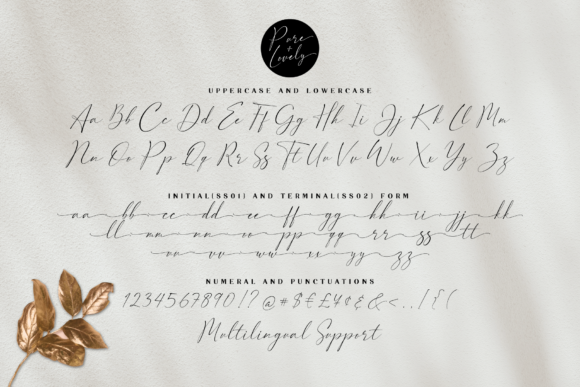 Pure
+
Lovely
UPPERCASE AND LOWERCASE
Aa Bb Cc Dd Ee Ff Gg Hh Ii Jj Kk Ll Mm
Nn Oo Pp Qq Rr Ss Tt Uu Vv Ww Xx Yy Zz
INITIAL(SS01) AND TERMINAL(SS02) FORM
aa bb cc dd ee ff gg hh ii jj kk
ll mm nn oo pp qq rr ss tt
uu vv ww xx yy zz
NUMERAL AND PUNCTUATIONS
1234567890!?@#$€£¥¢&<..[{(
Multilingual Support